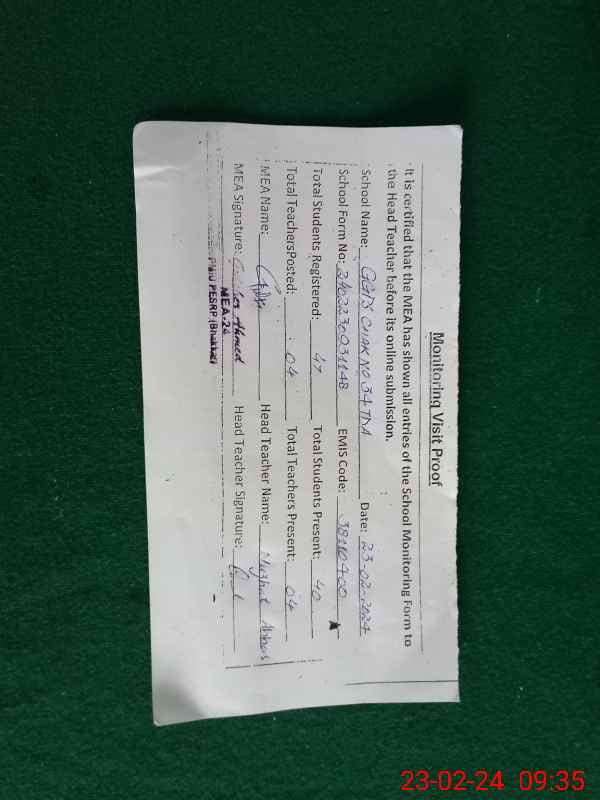 Monitoring Visit Proof
It is certified that the MEA has shown all entries of the School Monitoring Form to
the Head Teacher before its online submission.
School Name: GGHS CHAK NO 34 TDA Date: 23-02-2024
School Form No: 2402230031148 EMIS Code: 38110400
Total Students Registered: 47 Total Students Present: 40
Total TeachersPosted: 04 Total Teachers Present: 04
MEA Name: Head Teacher Name: Abbas
MEA Signature: Ahmed Head Teacher Signature:
MEA-24
PESRP (Bhakkar)
23-02-24 09:35